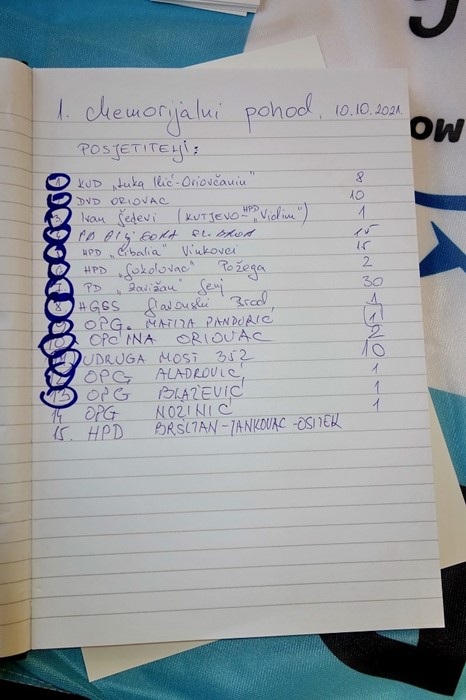 1. Memorijalni pohod, 10.10.2021.
POSJETITELJI:
1 KUD „Luka Ilić-Oriovčanin" 8
2 DVD ORIOVAC 10
3 Ivan Jedevi (KUTJEVO-HPD „Vidim") 1
4 PD SL. BROD 15
5 HPD „Cibalia" Vinkovci 15
6 HPD „Sokolovac" Požega 2
7 PD „Zavižan" Senj 30
8 HGSS Slavonski Brod, 1
9 OPG. MATIJA PANDURIĆ (1)
10 OPĆINA ORIOVAC 2
11 UDRUGA MOST 352 10
12 OPG ALADROVIĆ, 1
13 OPG BLAŽEVIĆ 1
14 OPG NOZINIĆ 1
15. HPD BRŠLJAN-JANKOVAC-OSIJEK
OW